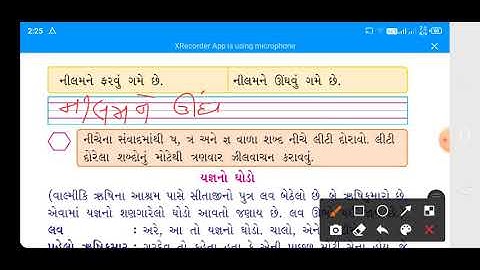 2:25
XRecorder App is using microphone
નીલમને ફરવું ગમે છે. નીલમને ઊંઘવું ગમે છે.
નીલમને ઊંઘ
નીચેના સંવાદમાંથી ય, ત્ર અને જ્ઞ વાળા શબ્દ નીચે લીટી દોરાવો. લીટી
દોરેલા શબ્દોનું મોટેથી ત્રણવાર ઝીલવાચન કરાવવું.
યજ્ઞનો ઘોડો
(વાલ્મીકિ ઋષિના આશ્રમ પાસે સીતાજીનો પુત્ર લવ બેઠેલો છે. બે ઋષિકુમારો છે.
એવામાં યજ્ઞનો શણગારેલો ઘોડો આવતો જણાય છે. લવ
લવ : અરે, આ તો યજ્ઞનો ઘોડો. ચાલો, એને
પહેલો ઋષિકુમાર :